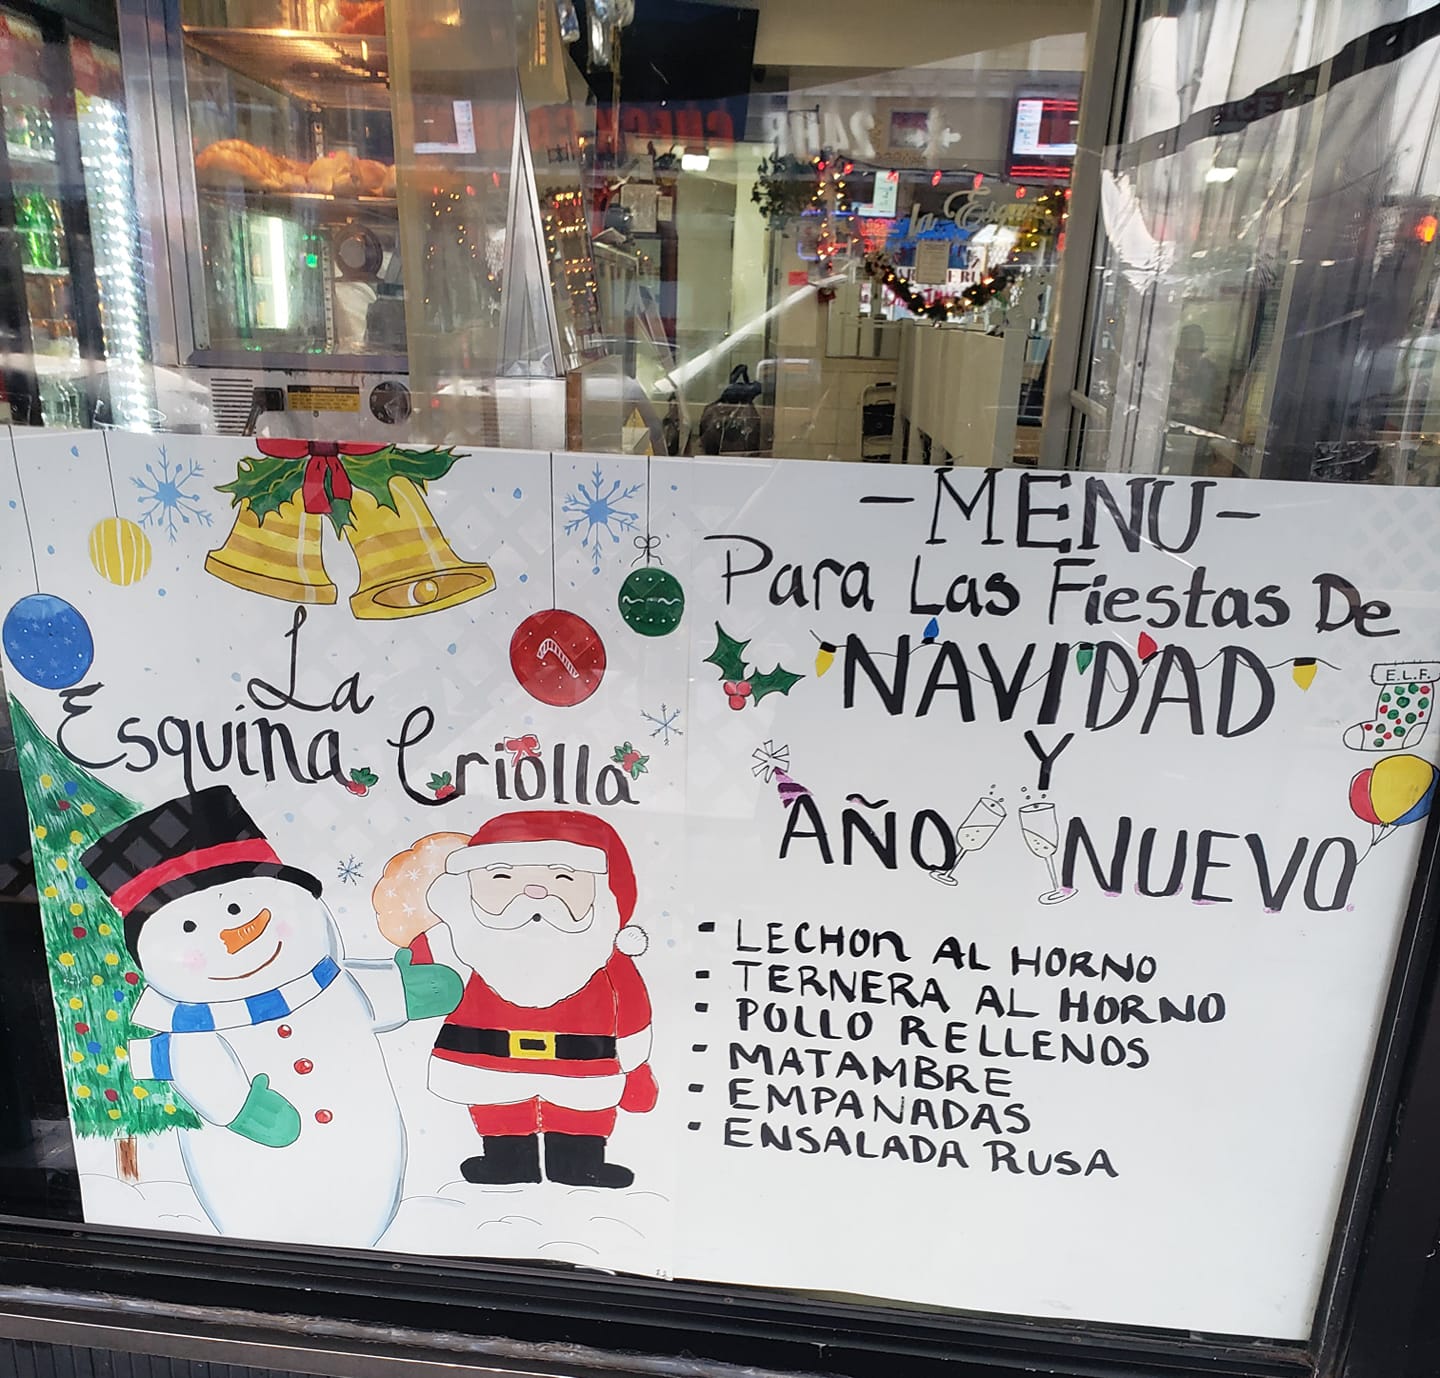 CHECK
24HR
La Esqu
La
Esquina Criolla
-MENU-
Para Las Fiestas De
NAVIDAD
E.L.F.
Y
AÑO NUEVO
- LECHON AL HORNO
- TERNERA AL HORNO
- POLLO RELLENOS
- MATAMBRE
- EMPANADAS
- ENSALADA RUSA